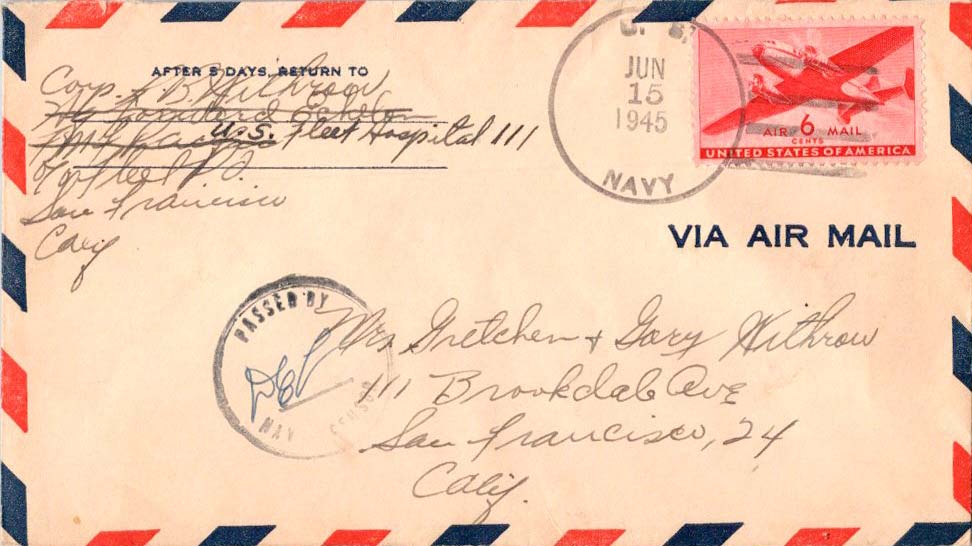 AFTER 5 DAYS, RETURN TO
Corp. J. B. Withrow
U.S. Fleet Hospital 111
c/o Fleet P.O.
San Francisco
Calif
U. S.
JUN
15
1945
NAVY
AIR 6 MAIL
CENTS
UNITED STATES OF AMERICA
VIA AIR MAIL
PASSED BY
NAV CENSOR
Mrs Gretchen + Gary Withrow
111 Brookdale Ave
San Francisco, 24
Calif.